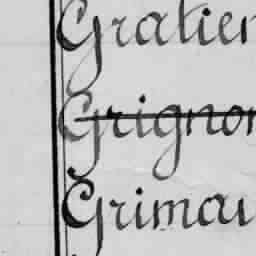 Gratien
Grignon
Grimau